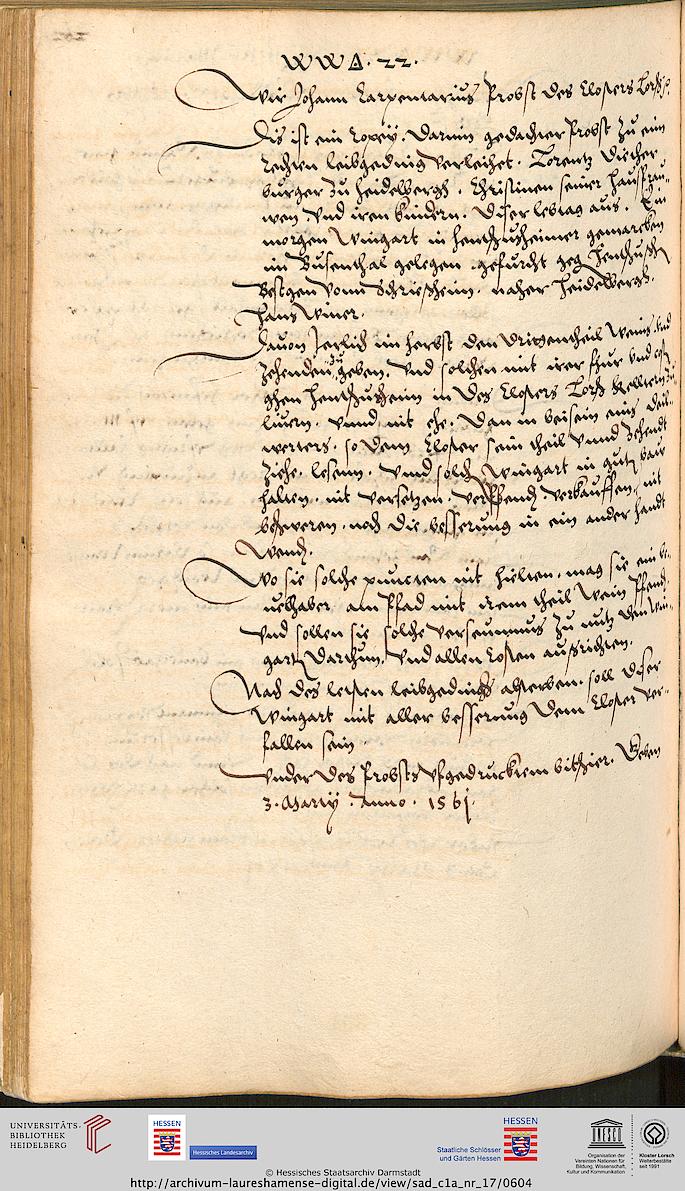 WWA. 22.
Wir Johann Carpentarius Probst des Closters Lorsch
Dis ist ein Copey. Darinn gedachter Probst zu ein
rechten leibgeding verleihet. Lorentz Vischer
burger zu Heidelbergh. Christinen seiner hausfrau-
wen vnd iren kindern. diser lebtag aus. Ein
morgen Wingart in hentschuheimer gemarcken
im Busenthal gelegen. gefurcht geg hentschush
Bestgen vonn Schriesheim. naher Heidelbergh.
Hans Winer.
Dauon Jerlich im herbst den drittentheil Weins. vnd
Zehenden zu geben. vnd solchen mit irer fhur vnd cost
ghen hentschusheim in des Closters Lorsch Kelltern zu
liuern. vnnd nit ehe. dan in beisein eins deil-
werters. so dem Closter sein theil vnnd Zehendt
ziehe. lesenn. vnnd solch Wingart in gutem bauw
halten. nit versetzen. verpfend verkauffen. nit
beschweren. noch die besserung in ein ander handt
Wend.
Wo sie solche puncten nit hielten. mag sie ein be-
uelhaber am Pfad mit irem theil Wein Pfend.
vnd sollen sie solche verseumnus zu nutz dem Win-
gart darthun. vnd allen Costen aussrichten.
Nach des letsten leibgedings absterben. soll diser
Wingart mit aller besserung dem Closter ver-
fallen sein.
Vnder des Probsts vfgedrucktem bitschier. Geben
3. Martij. Anno. 1561.
UNIVERSITÄTS-
BIBLIOTHEK
HEIDELBERG
HESSEN
Hessisches Landesarchiv
Staatliche Schlösser
und Gärten Hessen
HESSEN
UNESCO
Organisation der
Vereinten Nationen für
Bildung, Wissenschaft,
Kultur und Kommunikation
Kloster Lorsch
Welterbestätte
seit 1991
© Hessisches Staatsarchiv Darmstadt
http://archivum-laureshamense-digital.de/view/sad_c1a_nr_17/0604